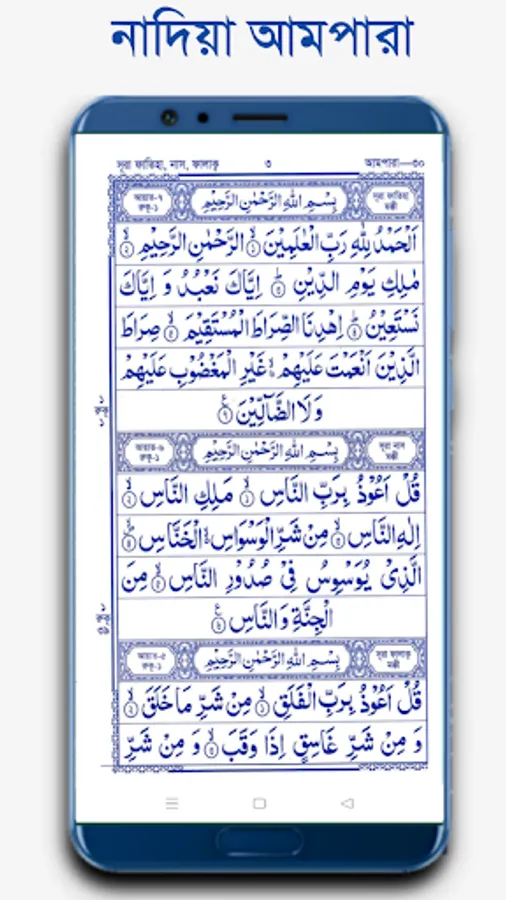 নাদিয়া আমপারা
সূরা ফাতিহা, নাস, ফালাক্ব ৩ আমপারা—৩০
আয়াত-৭ রুকূ-১ بِسْمِ اللّٰهِ الرَّحْمٰنِ الرَّحِيْمِ সূরা ফাতিহা মক্কী
اَلْحَمْدُ لِلّٰهِ رَبِّ الْعٰلَمِيْنَ ۝١ الرَّحْمٰنِ الرَّحِيْمِ ۝٢
مٰلِكِ يَوْمِ الدِّيْنِ ۝ اِيَّاكَ نَعْبُدُ وَ اِيَّاكَ
نَسْتَعِيْنُ ۝ اِهْدِنَا الصِّرَاطَ الْمُسْتَقِيْمَ ۝ صِرَاطَ
الَّذِيْنَ اَنْعَمْتَ عَلَيْهِمْ ۝ غَيْرِ الْمَغْضُوْبِ عَلَيْهِمْ
وَلَا الضَّآلِّيْنَ ۝
আয়াত-৬ রুকূ-১ بِسْمِ اللّٰهِ الرَّحْمٰنِ الرَّحِيْمِ সূরা নাস মক্কী
قُلْ اَعُوْذُ بِرَبِّ النَّاسِ ۝١ مَلِكِ النَّاسِ ۝٢
اِلٰهِ النَّاسِ ۝ مِنْ شَرِّ الْوَسْوَاسِ ۝ الْخَنَّاسِ ۝
الَّذِىْ يُوَسْوِسُ فِىْ صُدُوْرِ النَّاسِ ۝ مِنَ
الْجِنَّةِ وَ النَّاسِ ۝
আয়াত-৫ রুকূ-১ بِسْمِ اللّٰهِ الرَّحْمٰنِ الرَّحِيْمِ সূরা ফালাক্ব মক্কী
قُلْ اَعُوْذُ بِرَبِّ الْفَلَقِ ۝١ مِنْ شَرِّ مَا خَلَقَ ۝٢
وَ مِنْ شَرِّ غَاسِقٍ اِذَا وَقَبَ ۝ وَ مِنْ شَرِّ